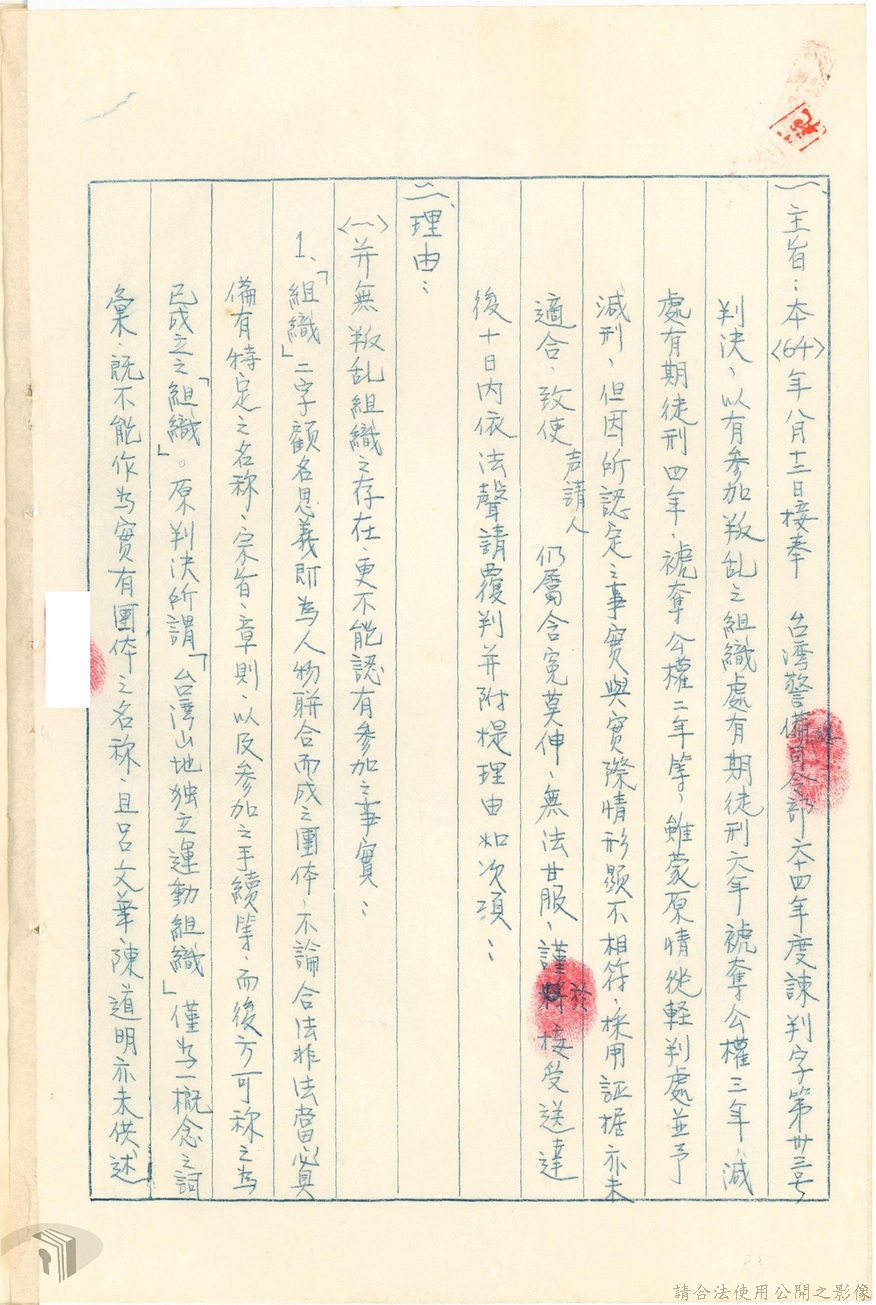 一、主旨：本〈64〉年八月十二日接奉 台湾警備總司令部六十四年度諫判字第卅三号
判決，以有参加叛乱之組織處有期徒刑六年褫奪公權三年，減
處有期徒刑四年，褫奪公權二年等，雖蒙原情從軽判處並予
減刑，但因所認定之事實與實際情形顯不相符，採用証据亦未
適合，致使 声請人 仍屬含冤莫伸，無法甘服，謹於接受送達
後十日内依法聲請覆判并附提理由如次項：
二、理由：
〈一〉并無叛乱組織之存在，更不能認有参加之事實：
1、「組織」二字顧名思義即為人物聯合而成之團体，不論合法非法當必具
備有特定之名称、宗旨、章則，以及参加之手續等，而後方可称之為
已成立之「組織」。原判決所謂「台湾山地独立運動組織」僅為一概念之詞
彙，既不能作為實有團体之名称，且呂文華、陳道明亦未供述
請合法使用公開之影像